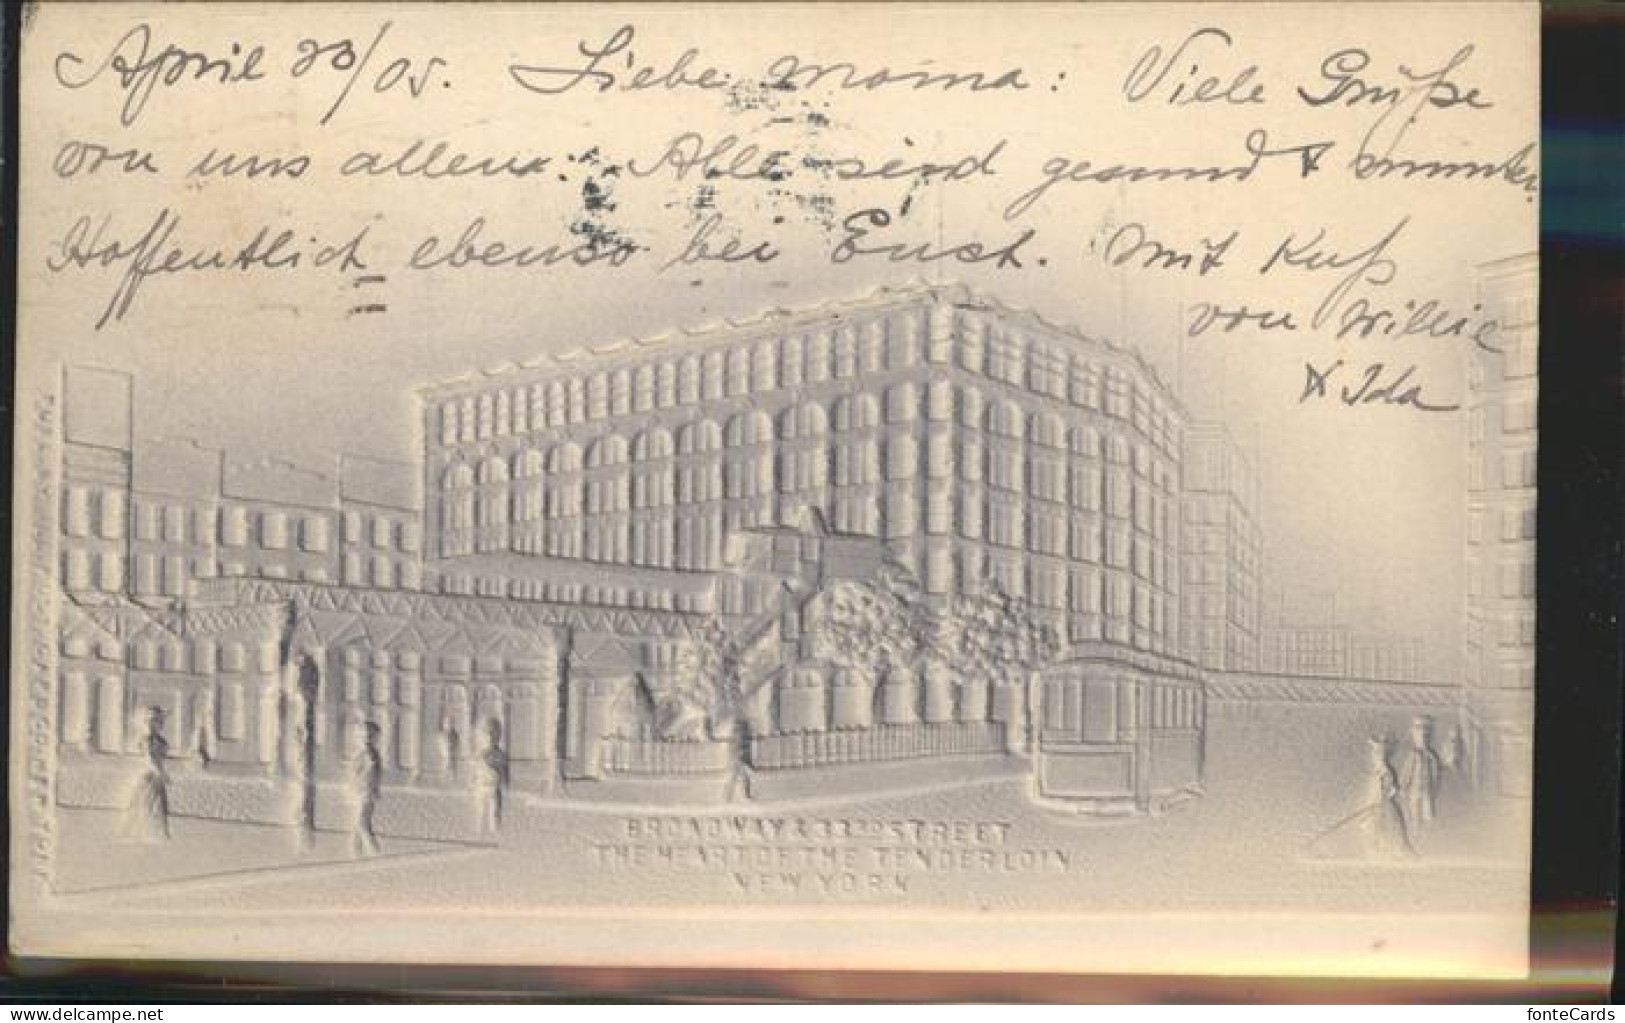 April 20/05. Liebe Mama: Viele Grüße
von uns allen. Alle sind gesund & munter.
Hoffentlich ebenso bei Euch. Mit Kuß
von Willie
& Ida
BROADWAY & 33RD STREET
THE HEART OF THE TENDERLOIN
NEW YORK
delcampe.net
fonteCards